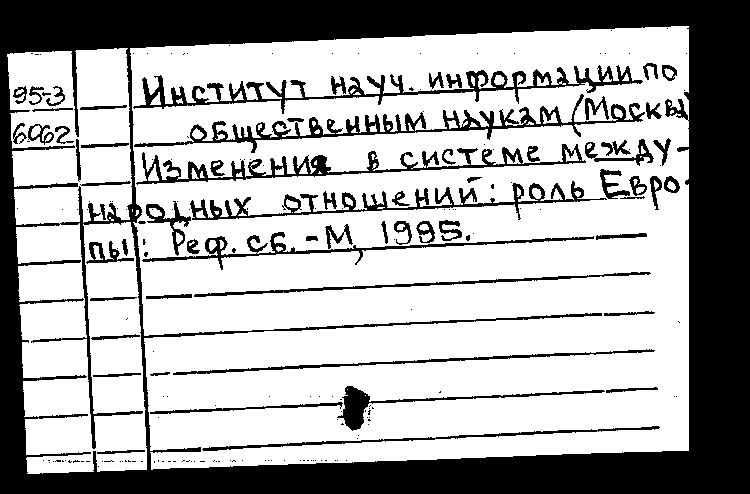 95-3 Институт науч. информации по
6062 общественным наукам (Москва)
Изменения в системе между-
народных отношений: роль Евро-
пы: Реф. сб. - М, 1995.